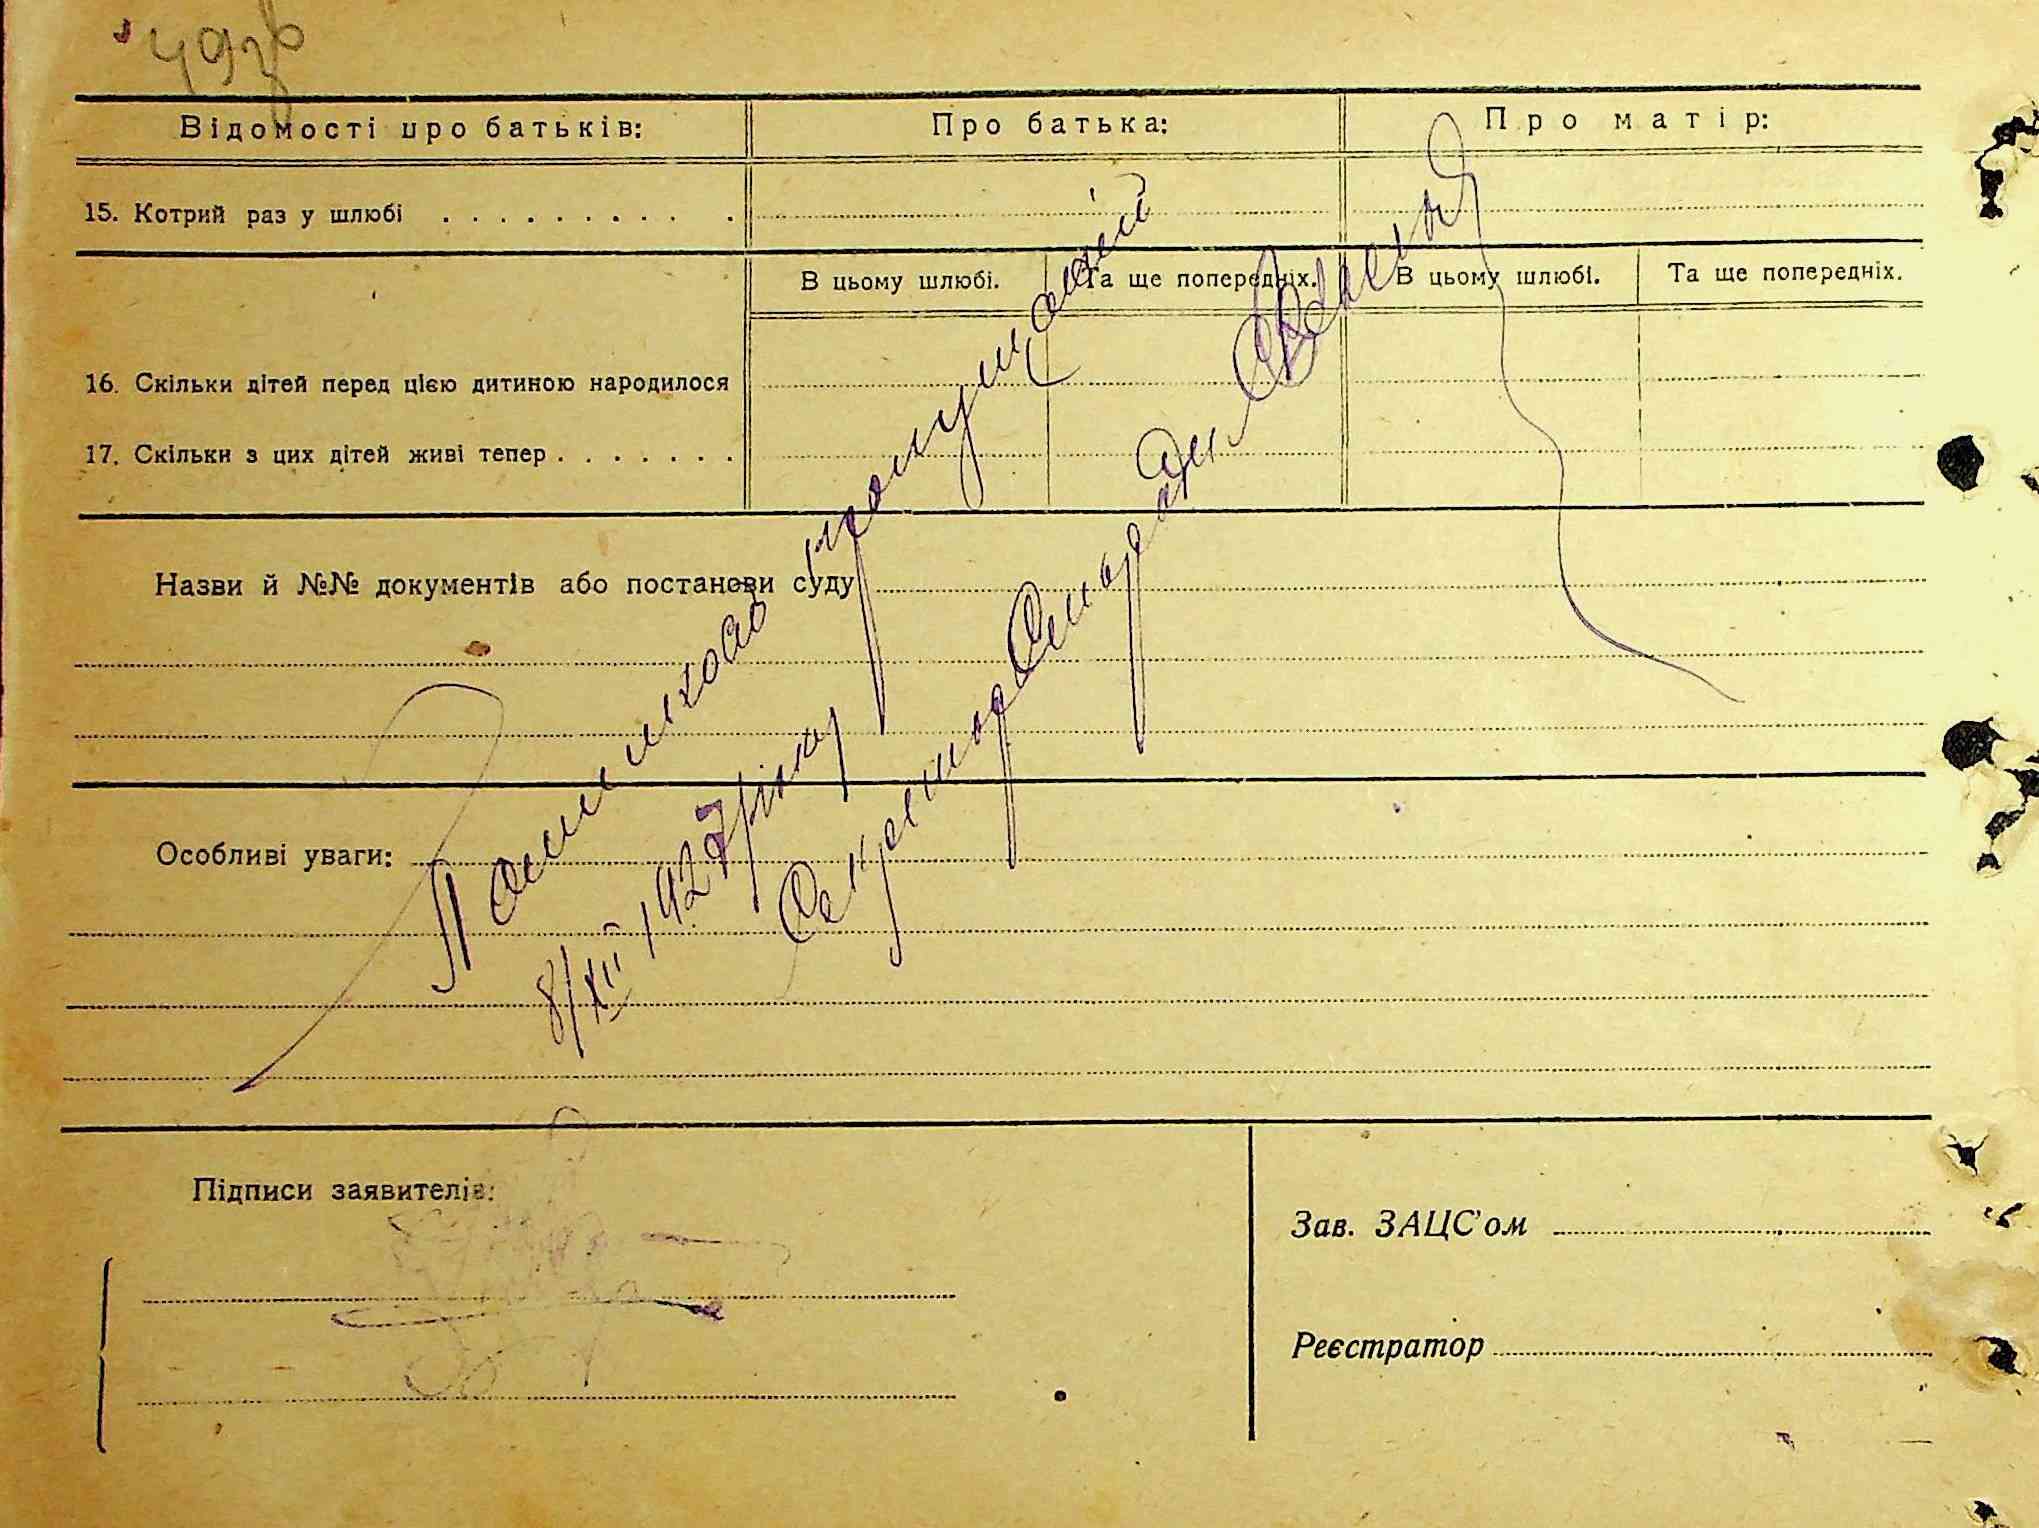 493б
Відомості про батьків:
Про батька:
Про матір:
15. Котрий раз у шлюбі
В цьому шлюбі.
Та ще попередніх.
В цьому шлюбі.
Та ще попередніх.
16. Скільки дітей перед цією дитиною народилося
17. Скільки з цих дітей живі тепер
Назви й №№ документів або постанови суду
Помилково пропущений
8/XII 1927 року
Секретар
Особливі уваги:
Підписи заявителів:
Зав. ЗАЦС'ом
Реєстратор